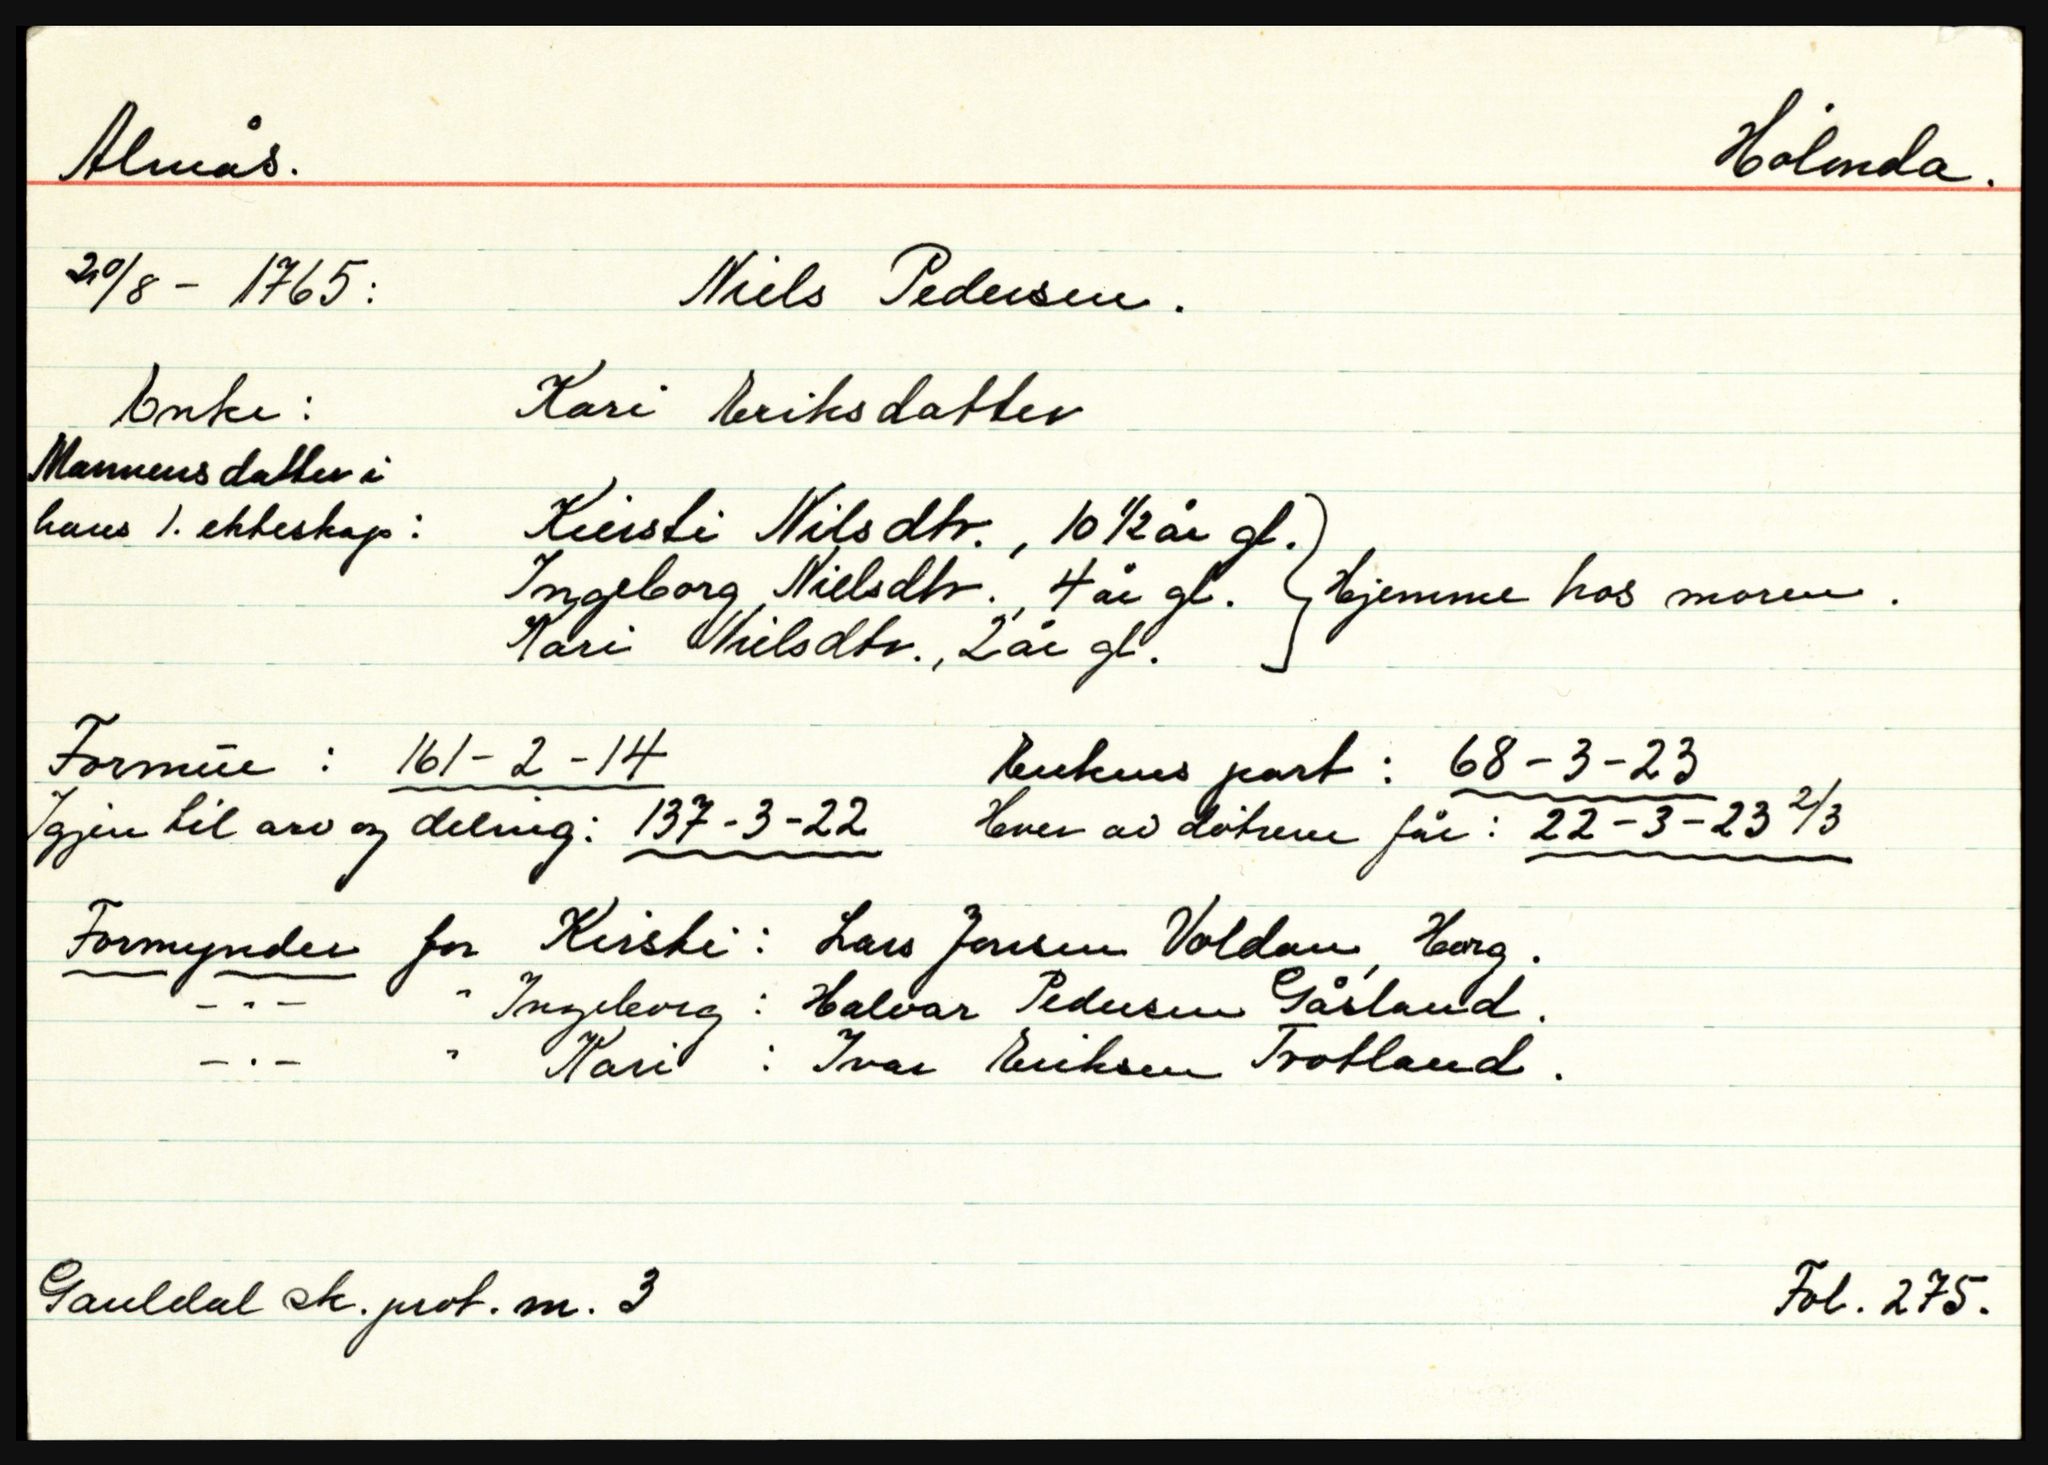 Almås. Hölonda.
20/8 - 1765: Niels Pedersen.
Enke: Kari Eriksdatter
Mannens datter i
hans 1. ekteskap: Kiersti Nilsdtr., 10 1/2 år gl.
Ingeborg Nielsdtr., 4 år gl. } Hjemme hos moren.
Kari Nielsdtr., 2 år gl.
Formue: 161-2-14 Enkens part: 68-3-23
Igjen til arv og deling: 137-3-22 Hver av dötrene får: 22-3-23 2/3
Formynder for Kirsti: Lars Jonsen Voldan, Horg.
-"- " Ingeborg: Halvar Pedersen Gåsland.
-"- " Kari: Ivar Eriksen Trotland.
Gauldal sk. prot. nr. 3 Fol. 275.